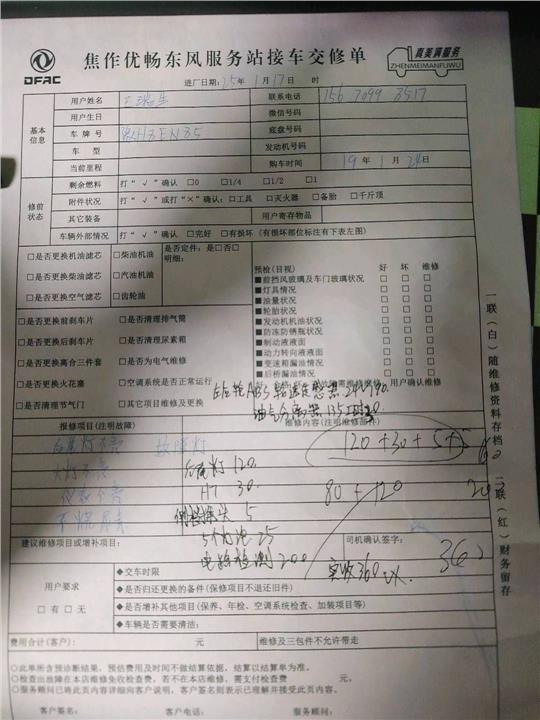 DFAC
焦作优畅东风服务站接车交修单
真美满服务
ZHENMEIMANFUWU
进厂日期:25年1月17日 时
基本信息
用户姓名
联系电话 156 7099 3517
用户生日
微信号码
车牌号 豫H3EN35
底盘号码
车型
发动机号码
当前里程
购车时间 19年1月24日
修前状态
剩余燃料 打“√”确认 □0 □1/4 □1/2 □1
附件状况 打“√”或打“×”确认:□工具 □灭火器 □备胎 □千斤顶
其它装备
用户寄存物品
车辆外部情况 打“√”确认 □完好 □有损坏(有损坏部位标注有下表左图)
□是否更换机油滤芯 □柴油机油
□是否更换柴油滤芯 □汽油机油
□是否更换空气滤芯 □齿轮油
是否定件:是□否□
明细:
□是否更换前刹车片 □是否清理排气筒
□是否更换后刹车片 □是否清理尿素箱
□是否更换离合三件套 □是否为电气维修
□是否更换火花塞 □空调系统是否正常运行
□是否清理节气门 □其它项目维修及更换
预检(目视) 好 坏 维修
■前挡风玻璃及车门玻璃状况 □ □ □
■灯具情况 □ □ □
■油量状况 □ □ □
■轮胎状况 □ □ □
■发动机机油状况 □ □ □
■防冻防锈瓶状况 □ □ □
■制动液液面 □ □ □
■动力转向液液面 □ □ □
■变速箱漏油情况 □ □ □
■后桥漏油情况 □ □ □
用户确认
报修项目(注明故障)
维修内容(注明维修部件)
故障灯
大灯不亮
后尾灯 120
H7 30
5
5个 25
电路检测 200
120+30+5+
80+120
实收360
360
建议维修项目或增补项目:
司机确认签字:
用户要求
□有 □无
◆交车时限
◆是否归还更换的备件(保修项目不退还旧件)
◆是否增补其他项目(保养、年检、空调系统检查、加装项目等)
◆车辆是否需要清洁:
费用合计(客户): 元
维修及三包件不允许带走
◎此单所含预诊断结果,预估费用及时间不做结算依据,结算以结算单为准。
◎检查出故障在本店维修免收检查费,若不在本店维修,需支付检查费 元。
◎服务顾问已将此页内容详细向客户说明,客户签名则表示已理解并接受此页内容。
客户签名: 客户电话: 服务顾问:
一联(白)随维修资料存档
二联(红)财务留存